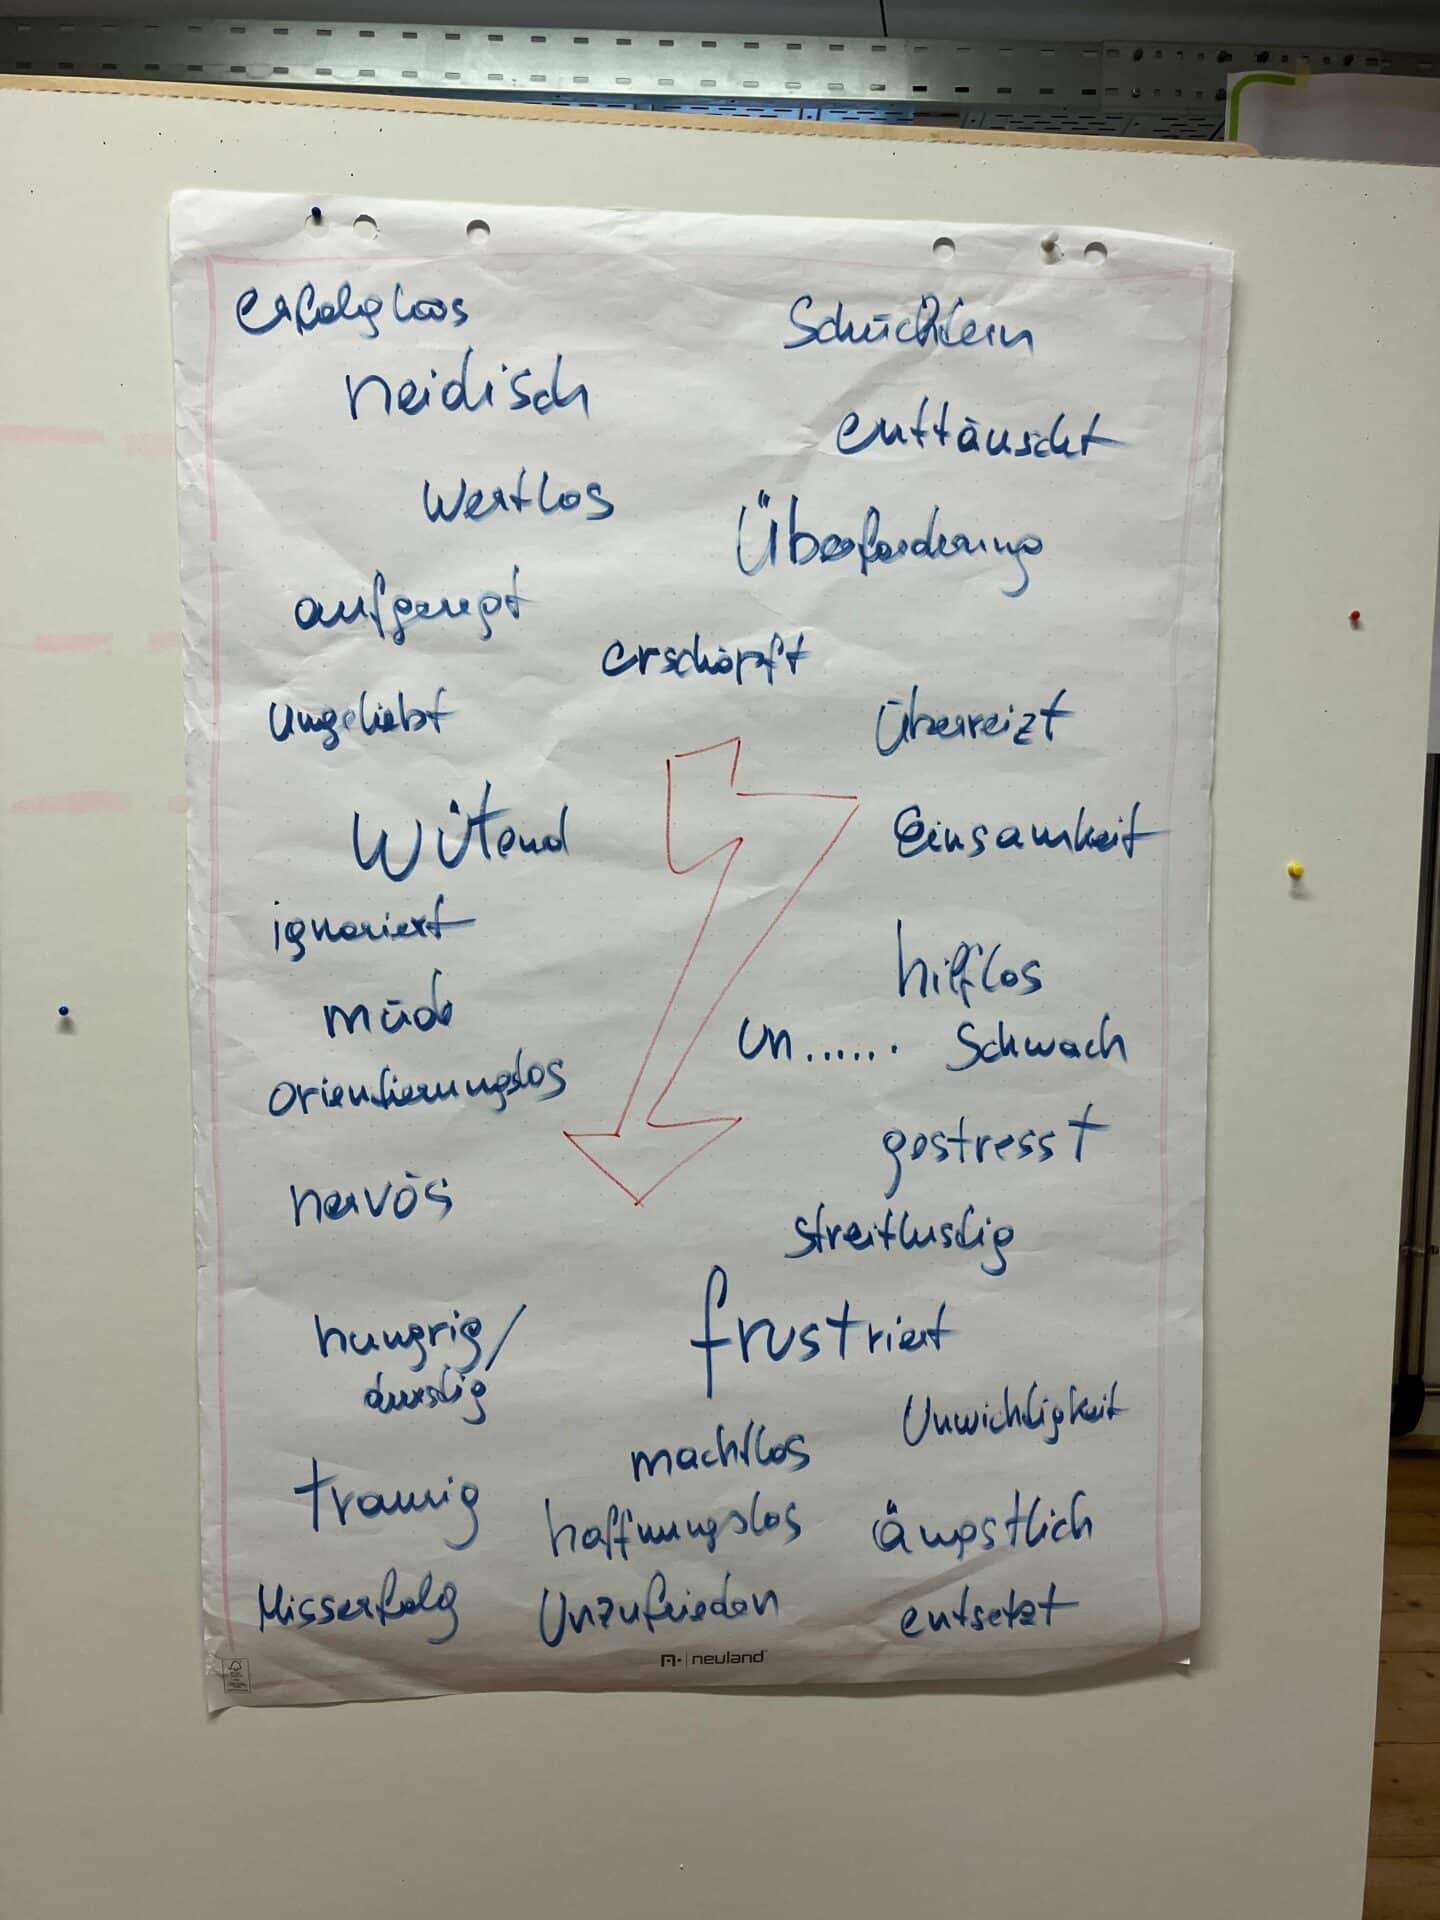 erfolgloos
Schüchtern
neidisch
enttäuscht
wertlos
Überforderung
aufgeregt
erschöpft
Ungeliebt
Überreizt
Wütend
Einsamkeit
ignoriert
hilflos
müde
Un...... Schwach
Orientierungslos
gestresst
nervös
streitlustig
hungrig/
durstig
frustriert
Unwichtigkeit
machtlos
traurig
hoffnungslos
ängstlich
Misserfolg
Unzufrieden
entsetzt
neuland